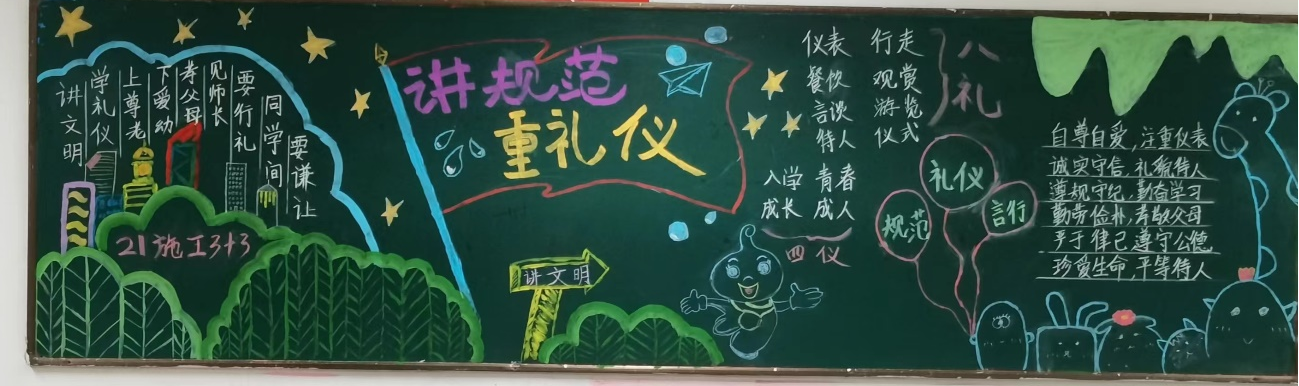 讲文明
学礼仪
上尊老
下爱幼
孝父母
见师长
要行礼
同学间
要谦让
21施工3+3
讲规范
重礼仪
讲文明
仪表
餐饮
言谈
待人
行走
观赏
游览
仪式
八礼
入学 青春
成长 成人
四仪
礼仪
规范
言行
自尊自爱,注重仪表
诚实守信,礼貌待人
遵规守纪,勤奋学习
勤劳俭朴,孝敬父母
严于律己,遵守公德
珍爱生命,平等待人